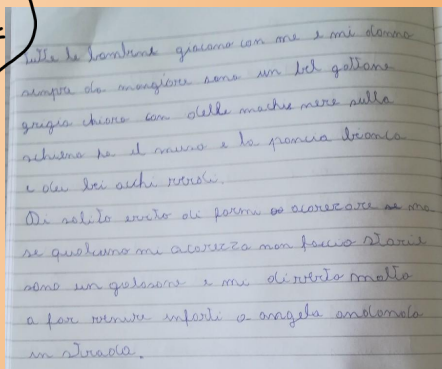 tutte le bambine giocano con me e mi donno
sempre da mangiare sono un bel gattone
grigio chiaro con delle machie nere sulla
schiena ho il muso e la pancia bianca
e dei bei ochi verdi.
Di solito evito di farmi acarezzare ma
se qualcuno mi acarezza non faccio storie
sono un golosone e mi diverto molto
a far venire infarti a angela andando
in strada.